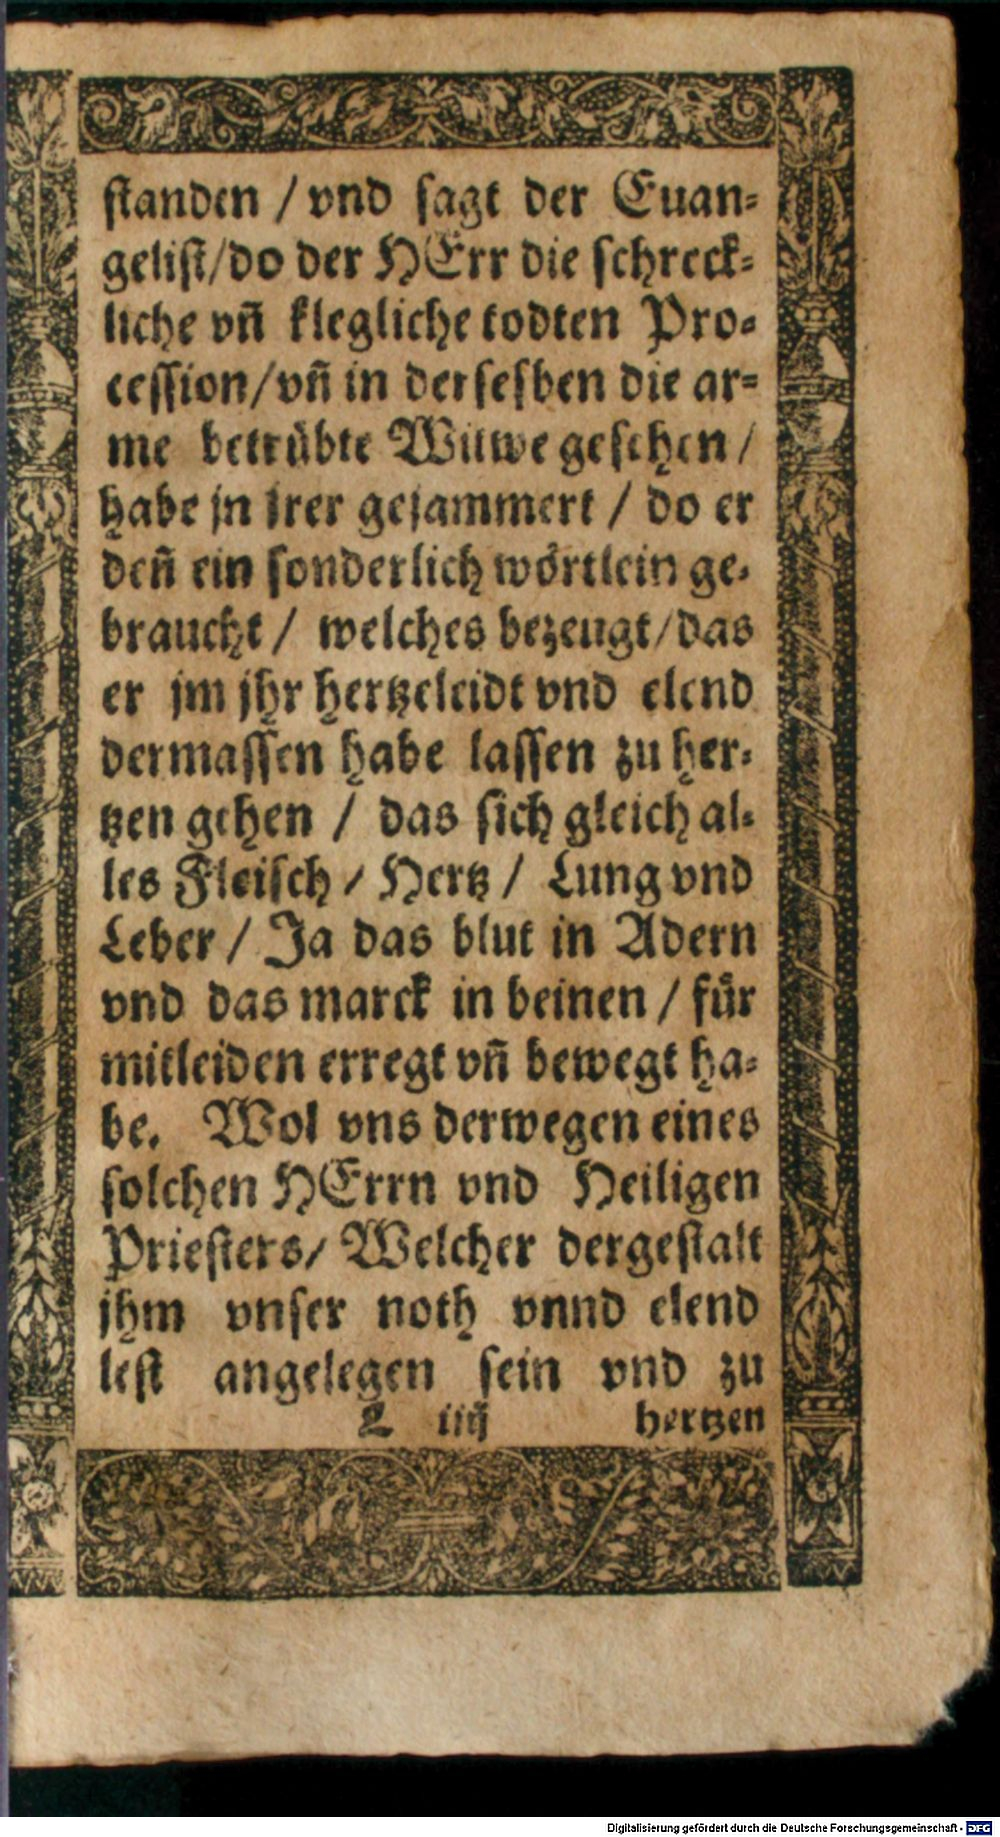 standen / vnd sagt der Euan-
gelist/do der HErr die schreck-
liche vñ klegliche todten Pro-
cession/vñ in derselben die ar-
me betrübte Witwe gesehen /
habe jn jrer gejammert / do er
deñ ein sonderlich wörtlein ge-
braucht / welches bezeugt/das
er jm jhr hertzeleidt vnd elend
dermassen habe lassen zu her-
tzen gehen / das sich gleich al-
les Fleisch / Hertz / Lung vnd
Leber / Ja das blut in Adern
vnd das marck in beinen / für
mitleiden erregt vñ bewegt ha-
be. Wol vns derwegen eines
solchen HErrn vnd Heiligen
Priesters/ Welcher dergestalt
jhm vnser noth vnnd elend
lest angelegen sein vnd zu
L iiij hertzen
Digitalisierung gefördert durch die Deutsche Forschungsgemeinschaft - DFG